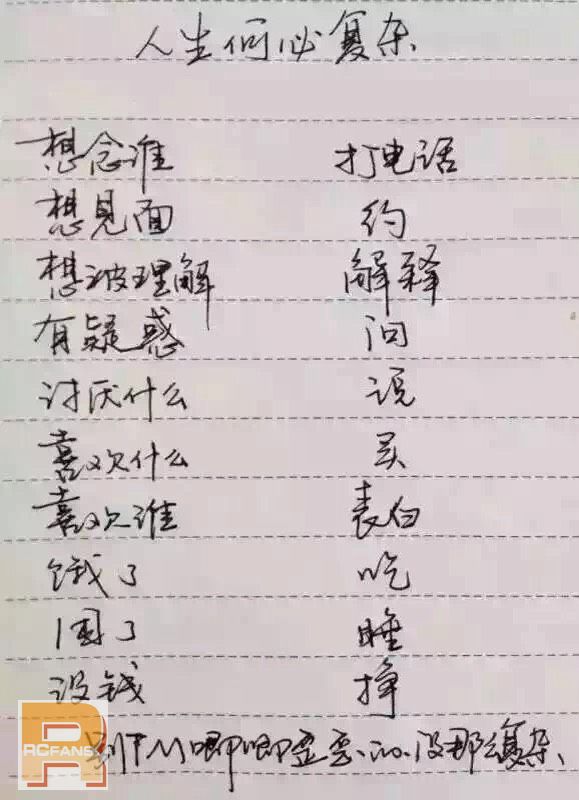 人生何必复杂
想念谁 打电话
想见面 约
想被理解 解释
有疑惑 问
讨厌什么 说
喜欢什么 买
喜欢谁 表白
饿了 吃
困了 睡
没钱 挣
别TM唧唧歪歪的.没那么复杂、
RCFANS